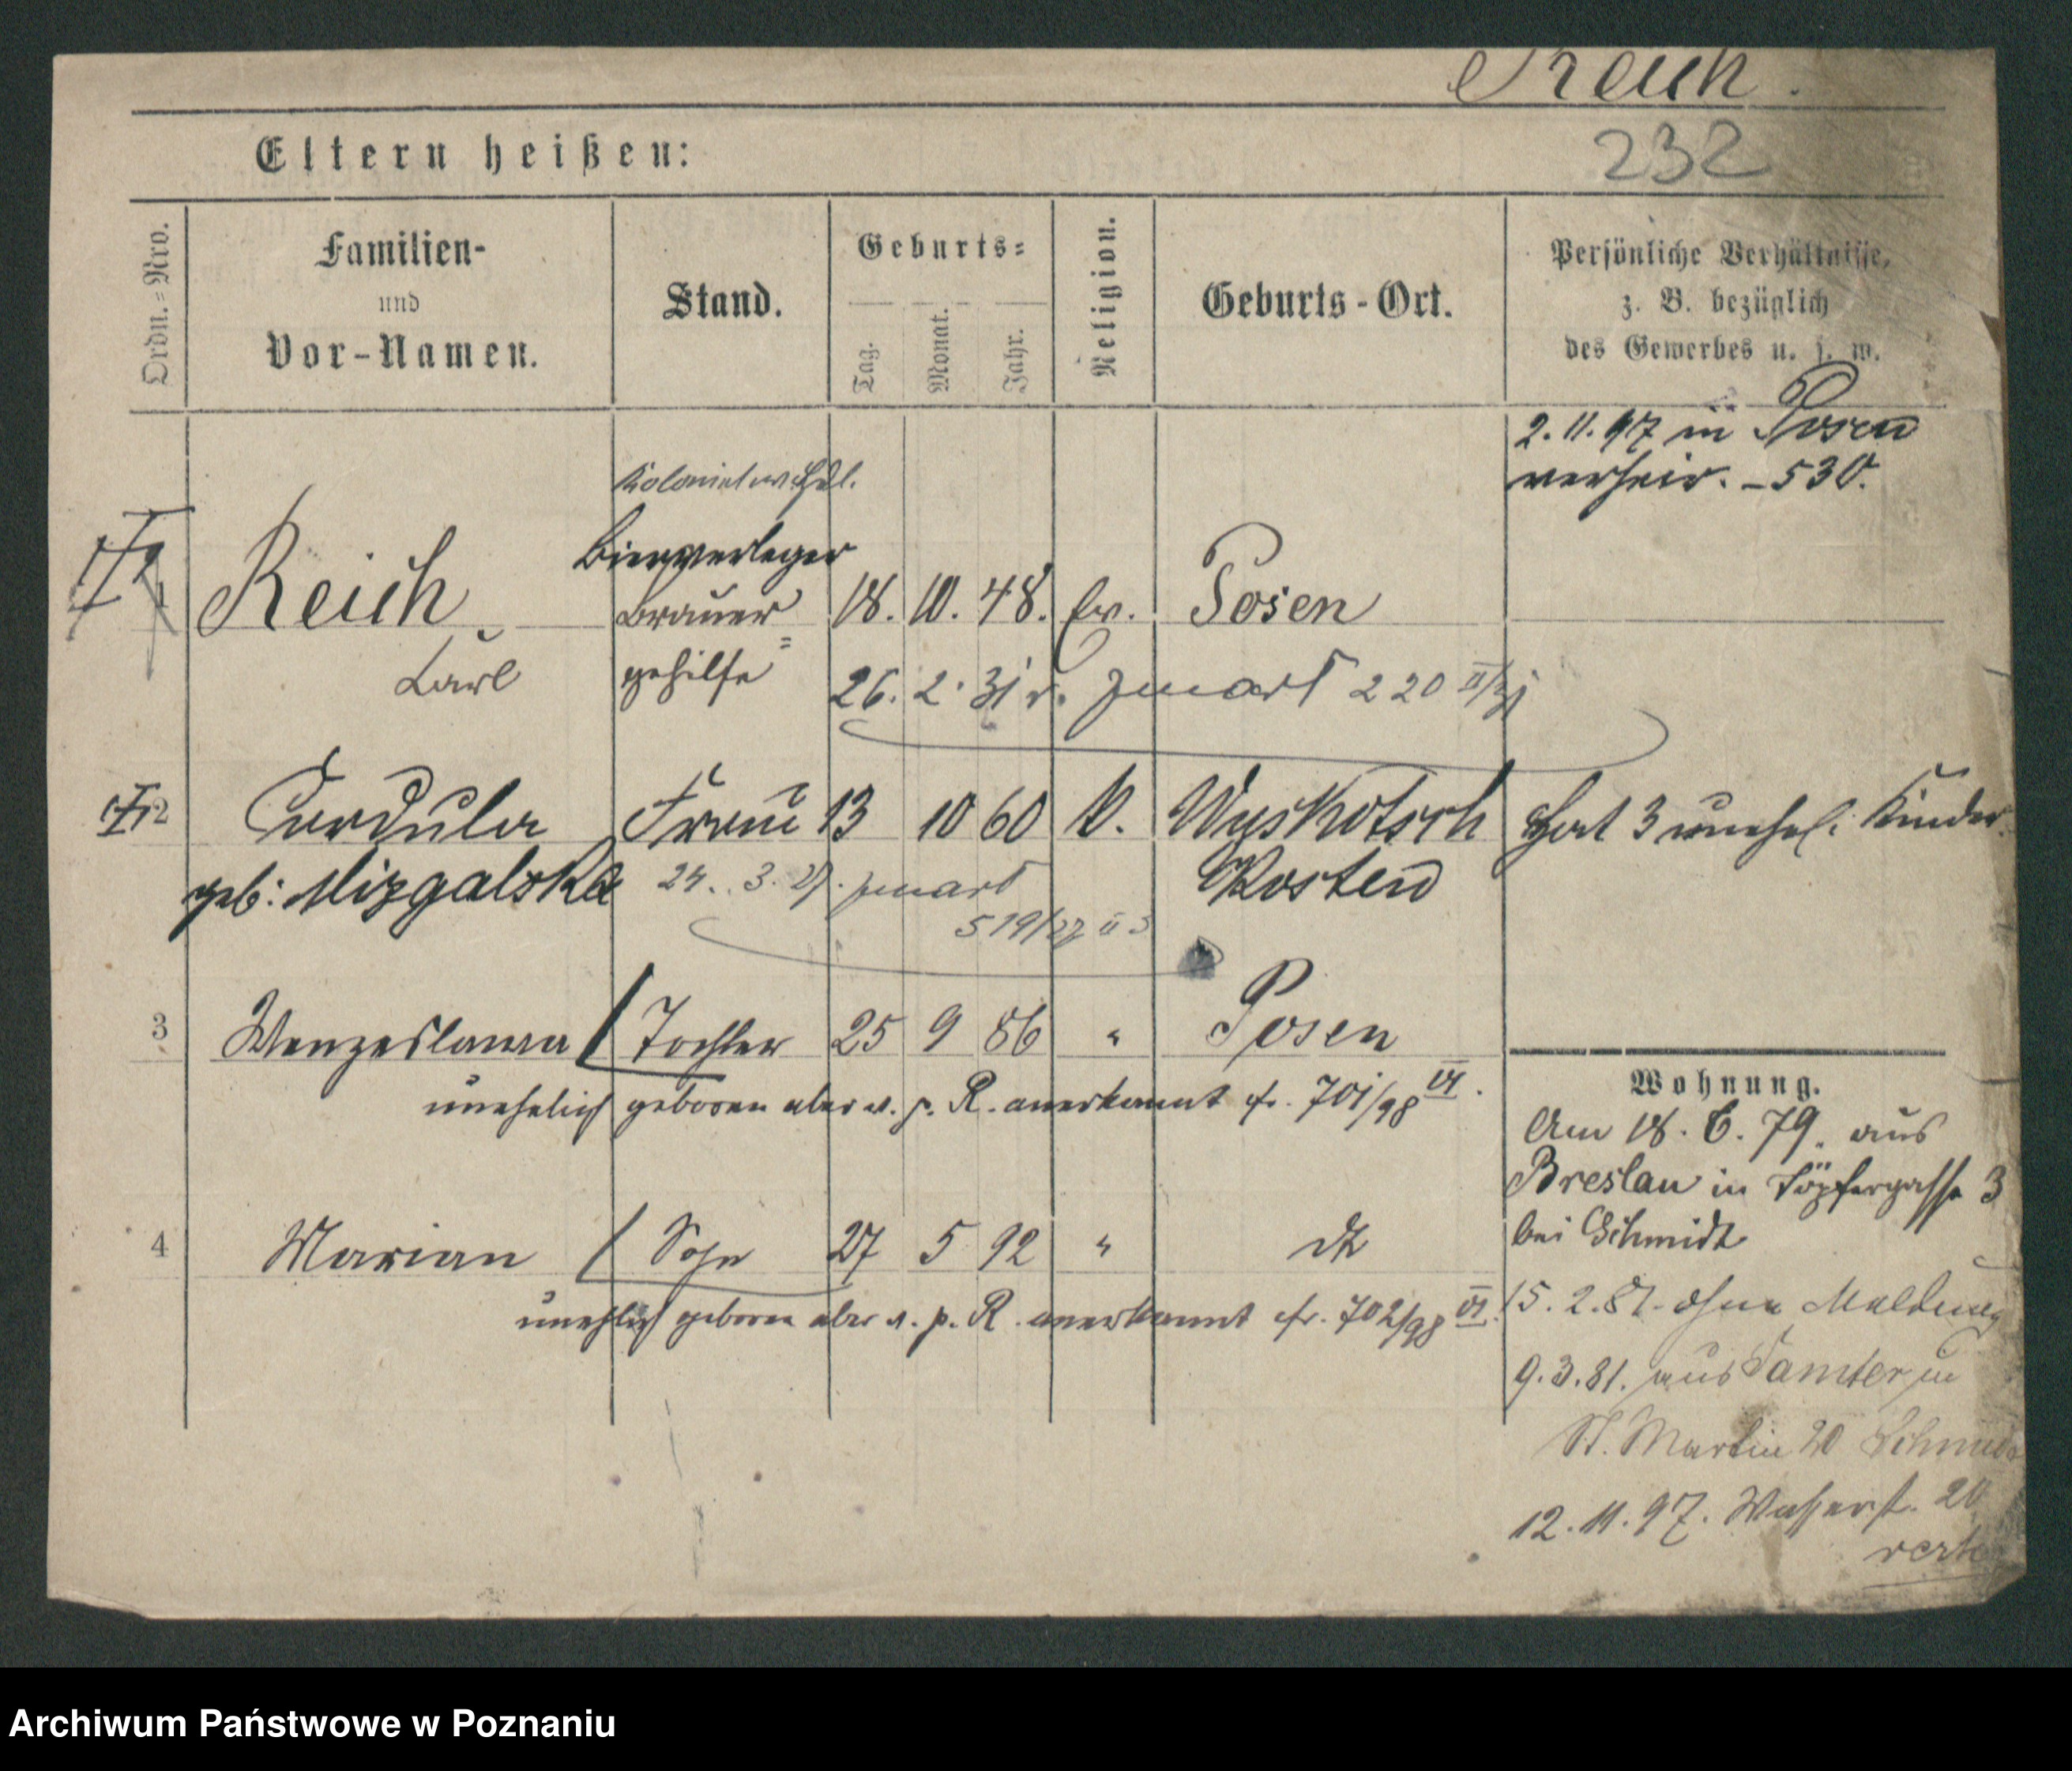 Reich.
232
Eltern heißen:
Ordn.-Nro.
Familien-
und
Vor-Namen.
Stand.
Geburts-
Tag.
Monat.
Jahr.
Religion.
Geburts-Ort.
Persönliche Verhältnisse,
z. B. bezüglich
des Gewerbes u. s. w.
2. 11. 97 in Posen
verheir. - 530.
Bierverleger
Reich Brauer= 18. 10. 48. Ev. Posen
Carl gehilfe
26. 2. 31 v. zmarł 220 II/31
2 Cordula Frau 13 10 60 k. Wyskotsch Hat 3 unehel. Kinder.
geb: Mizgalska Kosten
24. 3. 27. zmarł
519/27 II
3 Wenzeslawa Tochter 25 9 86 " Posen
unehelich geboren aber v. p. R. anerkannt cfr. 701/98 VI.
4 Marian Sohn 27 5 92 " dt
unehlich geboren aber v. p. R. anerkannt cfr. 702/98 VI.
Wohnung.
Am 18. 6. 79. aus
Breslau in Töpfergasse 3
bei Schmidt
15. 2. 81. ohne Meldung
9. 3. 81. aus Samter in
St. Martin 20
12. 11. 97. Wasserst. 20
verte
Archiwum Państwowe w Poznaniu